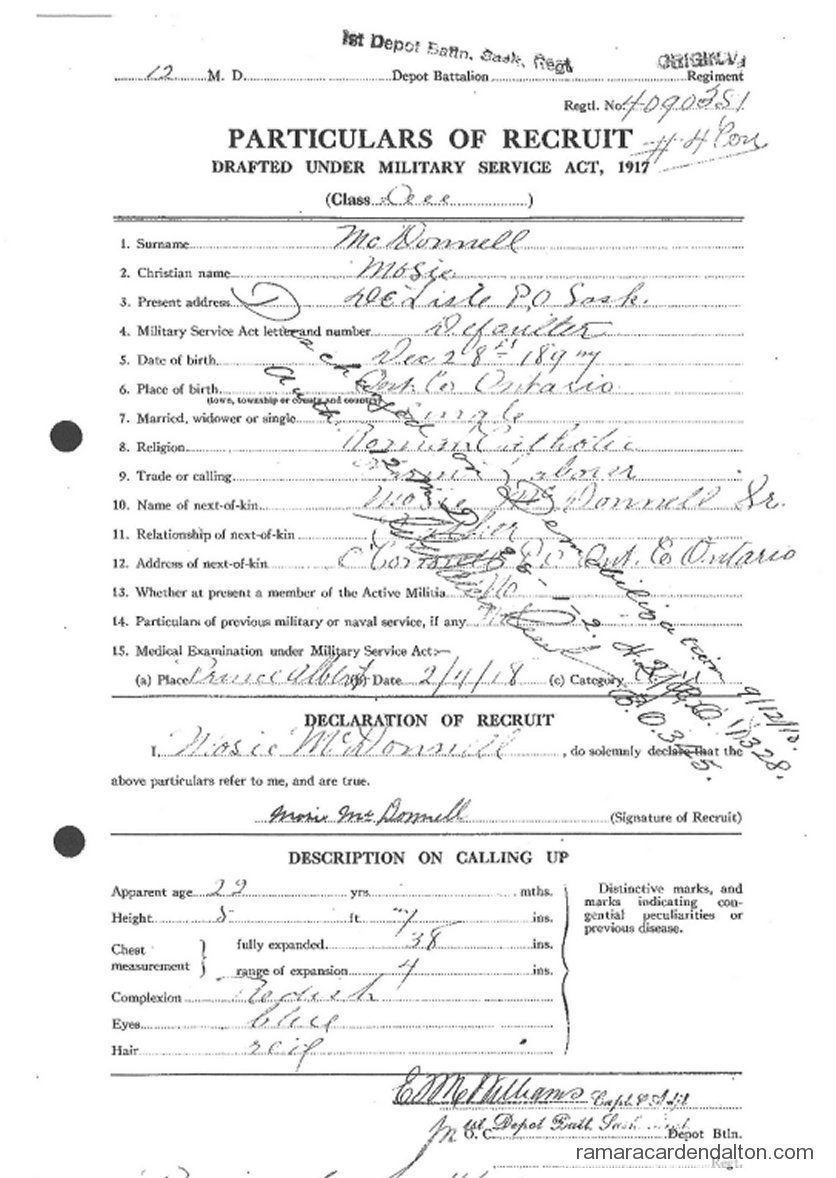 1st Depot Battn. Sask. Regt
ORIGINAL
12 M. D. Depot Battalion Regiment
Regtl. No. 4090351
PARTICULARS OF RECRUIT
DRAFTED UNDER MILITARY SERVICE ACT, 1917
(Class One )
1. Surname McDonnell
2. Christian name Mosie
3. Present address De Lisle P.O Sask.
4. Military Service Act letter and number Defaulter
5. Date of birth Dec 28th 1897
6. Place of birth Ont. Co Ontario
(town, township or county and country)
7. Married, widower or single Single
8. Religion Roman Catholic
9. Trade or calling Labover
10. Name of next-of-kin Mosie Mc Donnell Sr.
11. Relationship of next-of-kin Father
12. Address of next-of-kin P.O Ont. Co Ontario
13. Whether at present a member of the Active Militia No
14. Particulars of previous military or naval service, if any
15. Medical Examination under Military Service Act:—
(a) Place Prince Albert (b) Date 2/4/18 (c) Category
Discharged on Demobilization 9/12/18.
Auth. 12 M.D. 28-1-2. H.Q. R.O. 1328.
D.O. 345.
DECLARATION OF RECRUIT
I, Mosie McDonnell , do solemnly declare that the
above particulars refer to me, and are true.
Mosie McDonnell (Signature of Recruit)
DESCRIPTION ON CALLING UP
Apparent age 22 yrs. mths.
Height 5 ft. 7 ins.
Chest measurement
fully expanded 38 ins.
range of expansion 4 ins.
Complexion Redish
Eyes blue
Hair
Distinctive marks, and
marks indicating con-
genital peculiarities or
previous disease.
E McWilliams Capt & Adjt
O. C. 1st Depot Batt Sask Depot Btln.
Regt.
ramaracardendalton.com